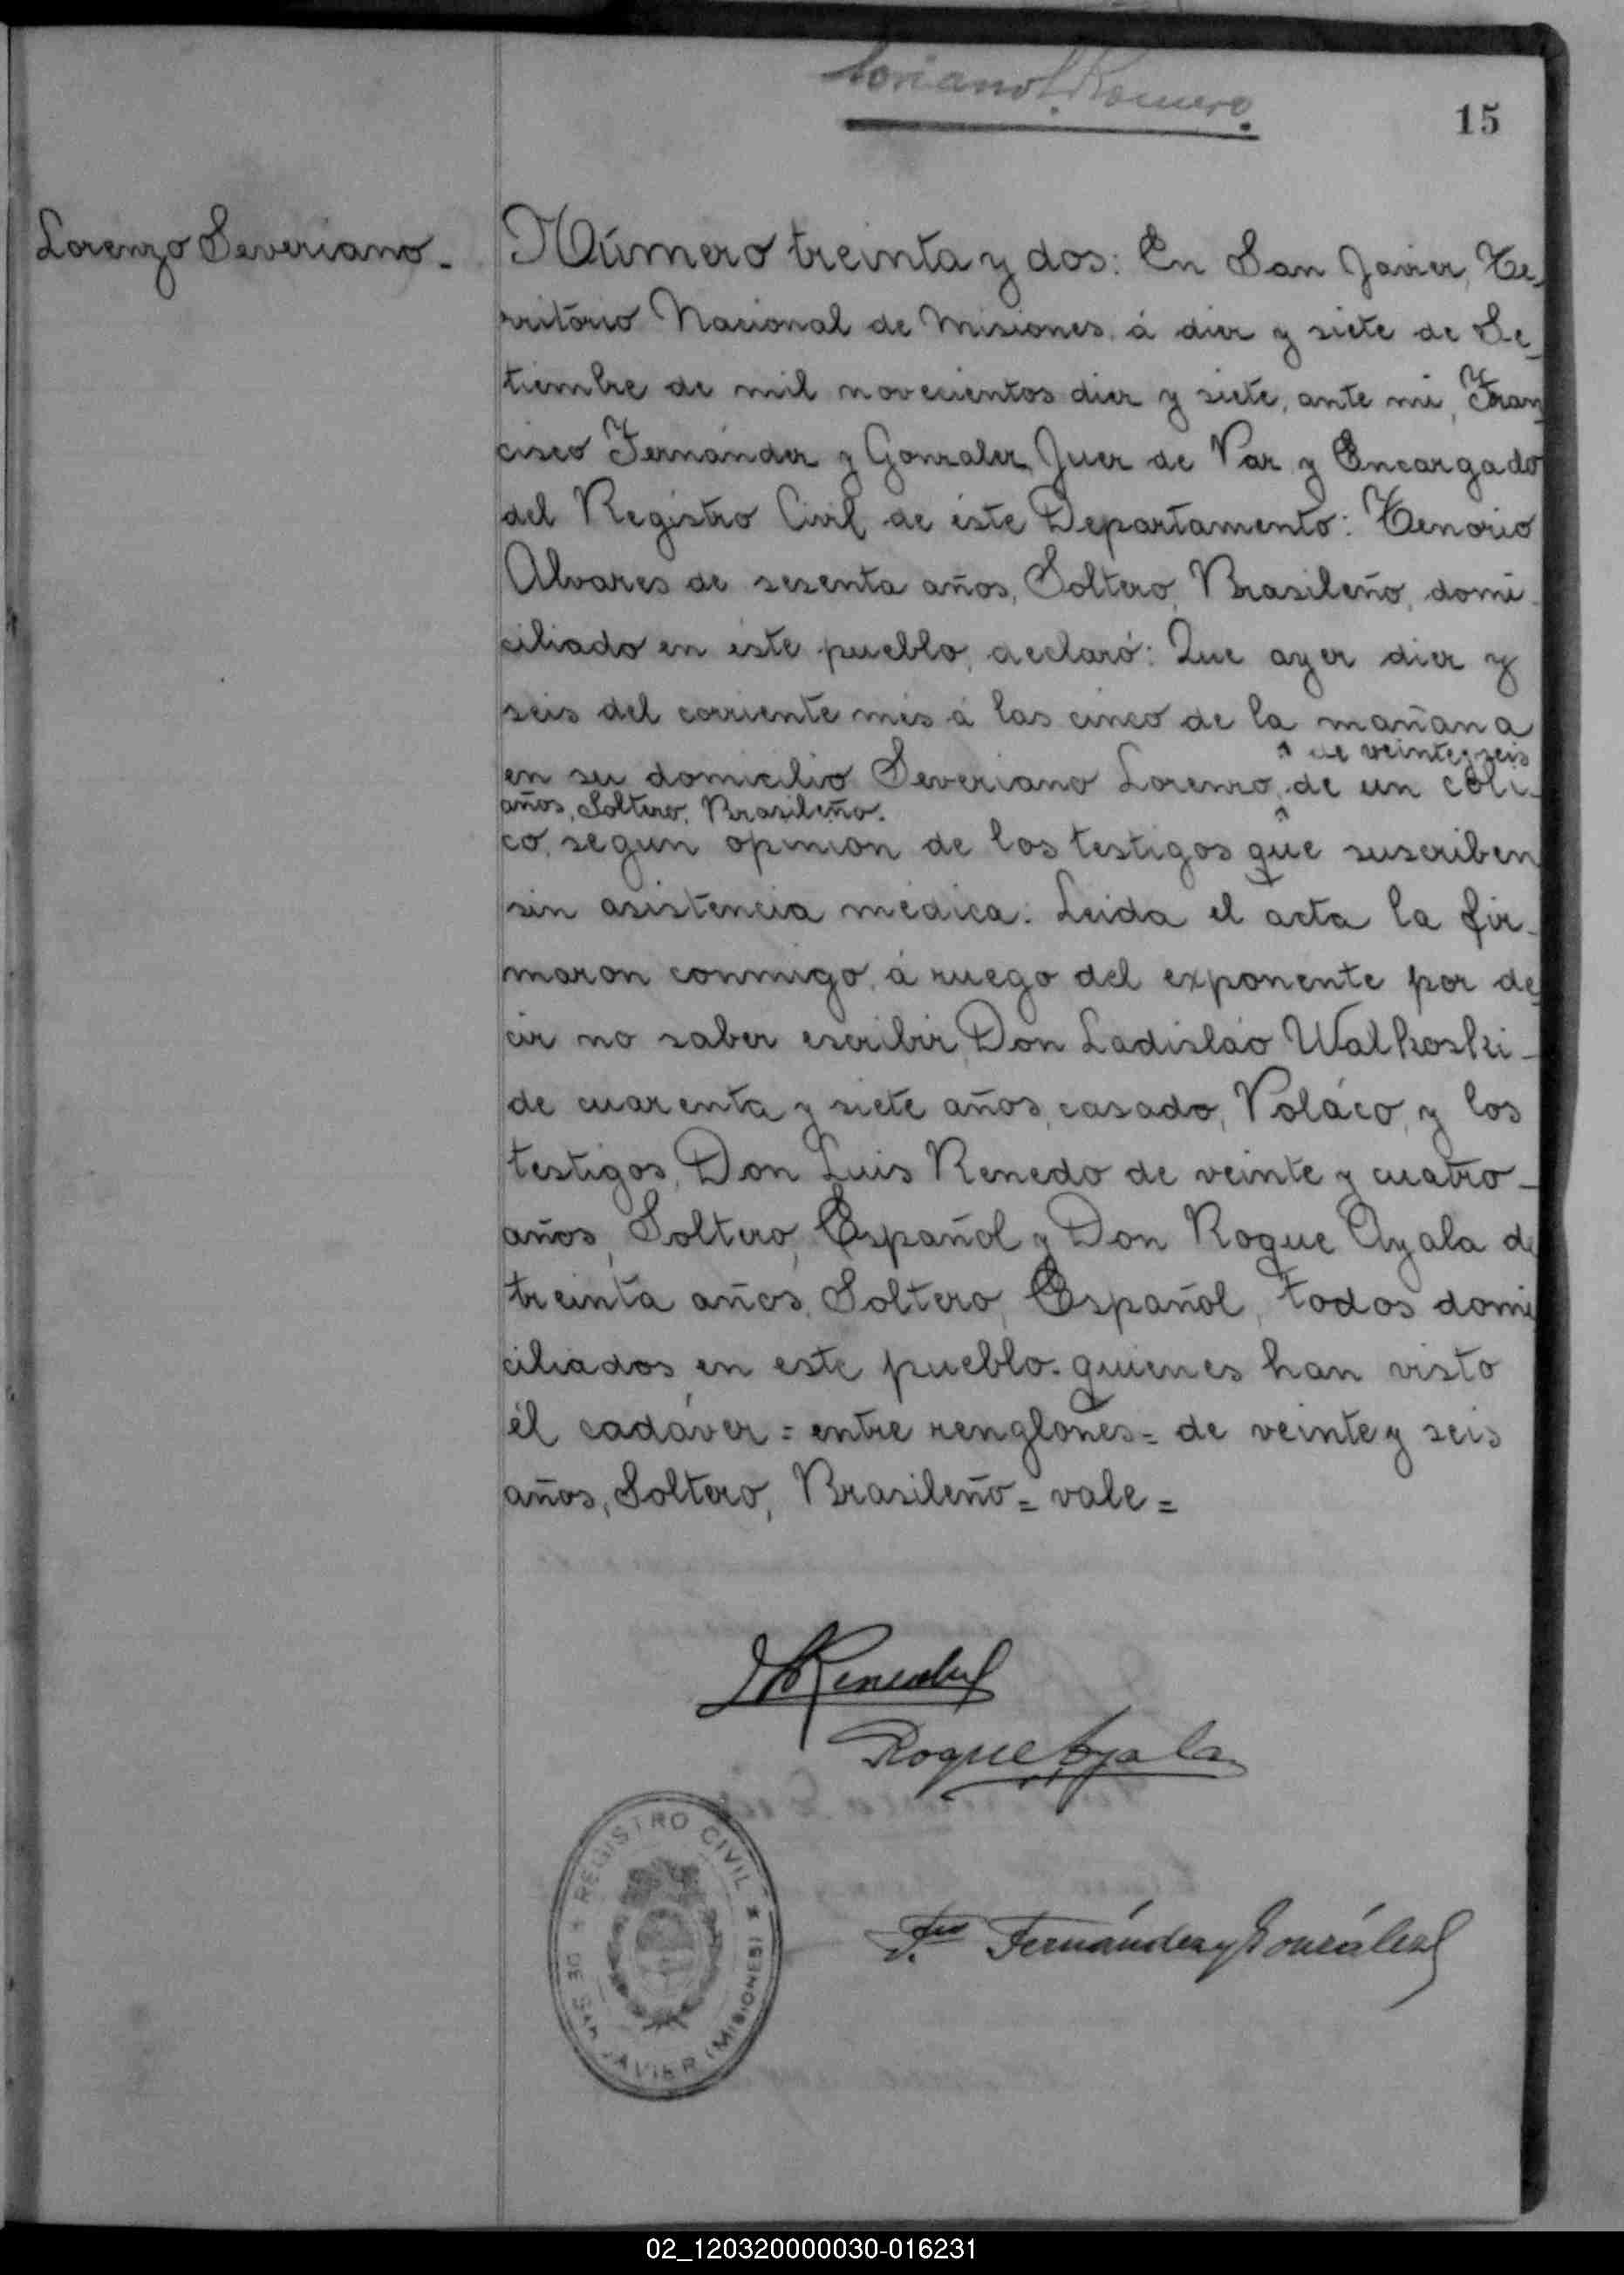 Soriano L. Romero.
15
Lorenzo Severiano.
Número treinta y dos: En San Javier, Te-
rritório Nacional de Misiones, á diez y siete de Se-
tiembre de mil novecientos diez y siete, ante mi, Fran-
cisco Fernández y Gonzalez, Juez de Paz y Encargado
del Registro Civil de éste Departamento: Tenorio
Alvares de sesenta años, Soltero, Brasileño, domi-
ciliado en éste pueblo, declaró: Que ayer diez y
seis del corriente més á las cinco de la mañana
de veinteyseis
en su domicilio Severiano Lorenzo, de un cóli-
años, Soltero, Brasileño.
co, segun opinion de los testigos que suscriben
sin asistencia médica: Leida el acta la fir-
maron conmigo, á ruego del exponente por de-
cir no saber escribir, Don Ladisláo Walkoski-
de cuarenta y siete años, casado, Poláco, y los
testigos, Don Luis Renedo de veinte y cuatro-
años, Soltero, Español y Don Roque Ayala de
treinta años, Soltero, Español, todos domi
ciliados en este pueblo. quienes han visto
él cadáver = entre renglones = de veinte y seis
años, Soltero, Brasileño = vale =
L Renedo
Roque Ayala
Fco Fernández y González
REGISTRO CIVIL
DE SAN JAVIER (MISIONES)
02_120320000030-016231